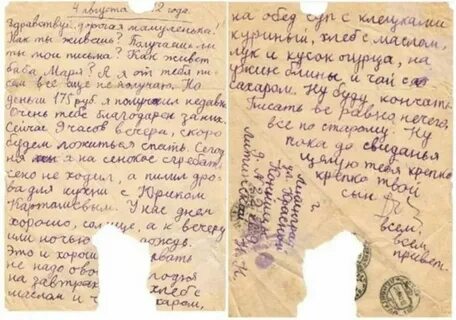 4 августа 2 года.
Здравствуй, дорогая мамуленька!
Как ты живешь? Получаешь ли
ты мои письма? Как живет
баба Маря? А я от тебя пи
сем все еще не получаю. Но
деньги 175 руб. я получил недавно
Очень тебе благодарен за них.
Сейчас 9 часов вечера, скоро
будем ложиться спать. Сегод
ня я на сенокос сгребать
сено не ходил, а пилил дро
ва для кухни с Юриком
Карташевым. У нас днем
хорошо, солнце, а к вечеру
или ночью дождь.
Это и хорошо вать
не надо ово
на завтрак хлебе с
маслом и ч харом,
на обед суп с клецками
куриный, хлеб с маслом,
лук и кусок огурца, на
ужин блины и чай с
сахаром. Ну буду кончать
Писать все равно нечего,
все по старому. Ну
пока до свиданья
целую тебя крепко
крепко твой
сын
всем,
всем
привет.